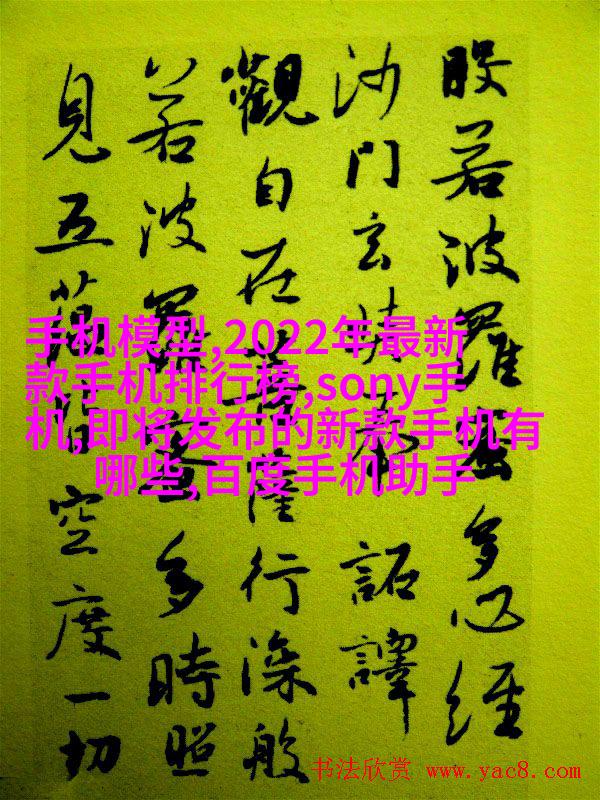 般若波羅蜜多心經
沙門玄奘奉 詔譯
觀自在菩薩行深般
若波羅蜜多時照
見五蘊皆空度一切
手机模型,2022年最新
款手机排行榜,sony手
机,即将发布的新款手机有
哪些,百度手机助手
书法欣赏 www.yac8.com